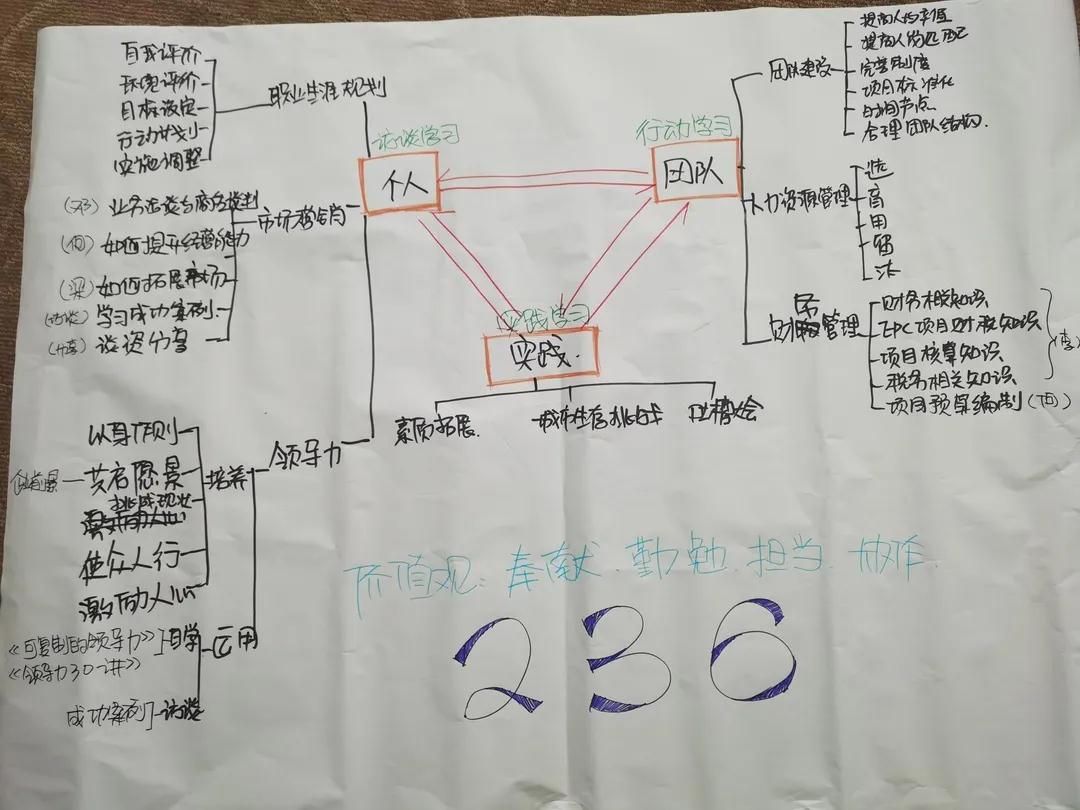 自我评价
环境评价
目标设定
行动计划
实施调整
职业生涯规划
访谈学习
个人
市场营销
业务洽谈与商务谈判
(何) 如何提升经营能力
(梁) 如何拓展市场
(访谈) 学习成功案例
(分享) 谈资分享
领导力
培养
以身作则
共启愿景
挑战现状
使众人行
激励人心
运用
《可复制的领导力》
《领导力30讲》
自学
成功案例
访谈
行动学习
团队
团队建设
提高人均率值
提高人岗匹配
完善制度
项目标准化
时间节点
合理团队结构.
人力资源管理
选
育
用
留
汰
财务管理
财务相关知识
EPC项目财税知识
项目核算知识
税务相关知识
(李)
项目预算编制 (何)
实践学习
实践.
素质拓展.
城市生存挑战
吐槽会
价值观: 奉献. 勤勉. 担当. 协作.
236